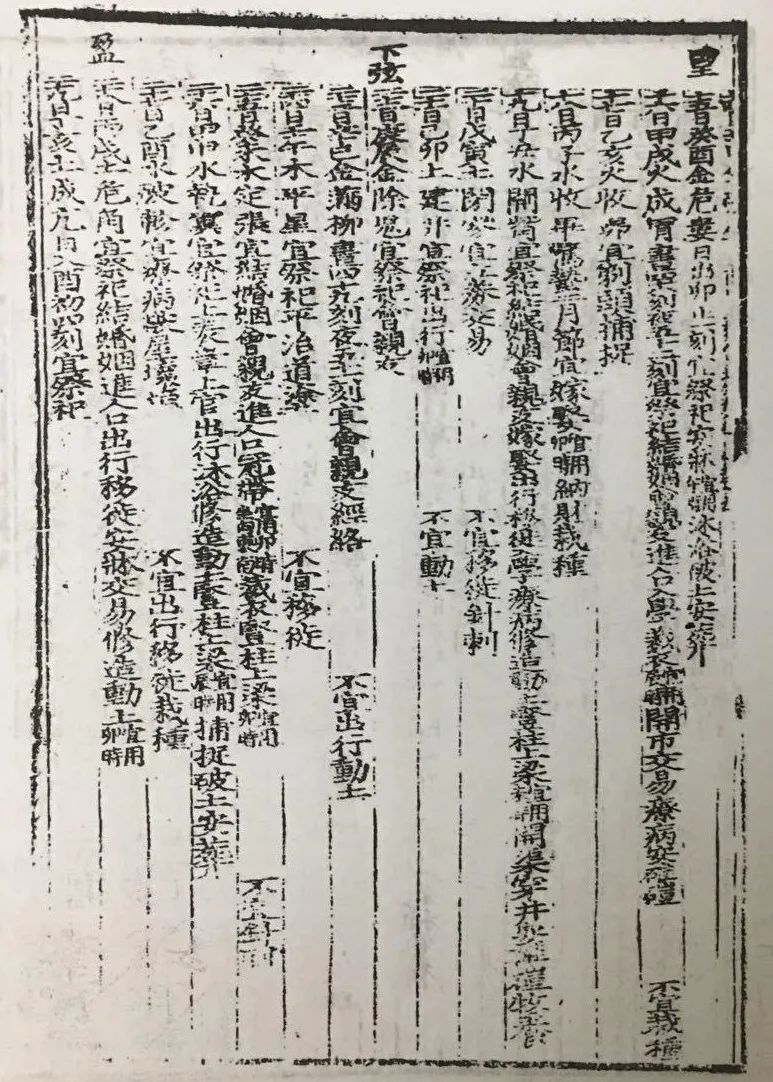 望
十五日癸酉金危婁日出卯正刻宜祭祀安牀沐浴破土安葬
十六日甲戌火成胃晝刻夜五十二刻宜祭祀結婚姻會親友進人口入學裁衣開市交易療病安碓磑 不宜栽種
十七日乙亥火收昴宜剃頭捕捉
十八日丙子水收畢驚蟄二月節宜嫁娶納財栽種
十九日丁丑水開觜宜祭祀結婚姻會親友嫁娶出行移徙入學療病修造動土豎柱上梁開渠穿井安碓磑牧養
二十日戊寅土閉參宜安葬交易 不宜移徙針刺
二十一日己卯土建井宜祭祀出行 不宜動土
下弦
二十二日庚辰金除鬼宜祭祀會親友
二十三日辛巳金滿柳晝四十九刻夜五十一刻宜會親友經絡 不宜出行動土
二十四日壬午木平星宜祭祀平治道塗 不宜移徙
二十五日癸未木定張宜結婚姻會親友進人口冠帶裁衣豎柱上梁宜用卯時 不宜
二十六日甲申水執翼宜祭祀上表章上官出行沐浴修造動土豎柱上梁宜用辰時捕捉破土安葬
二十七日乙酉水破軫宜療病破屋壞垣 不宜出行移徙栽種
盈
二十八日丙戌土危角宜祭祀結婚姻進人口出行移徙安牀交易修造動土宜用卯時
二十九日丁亥土成亢日入酉初刻宜祭祀